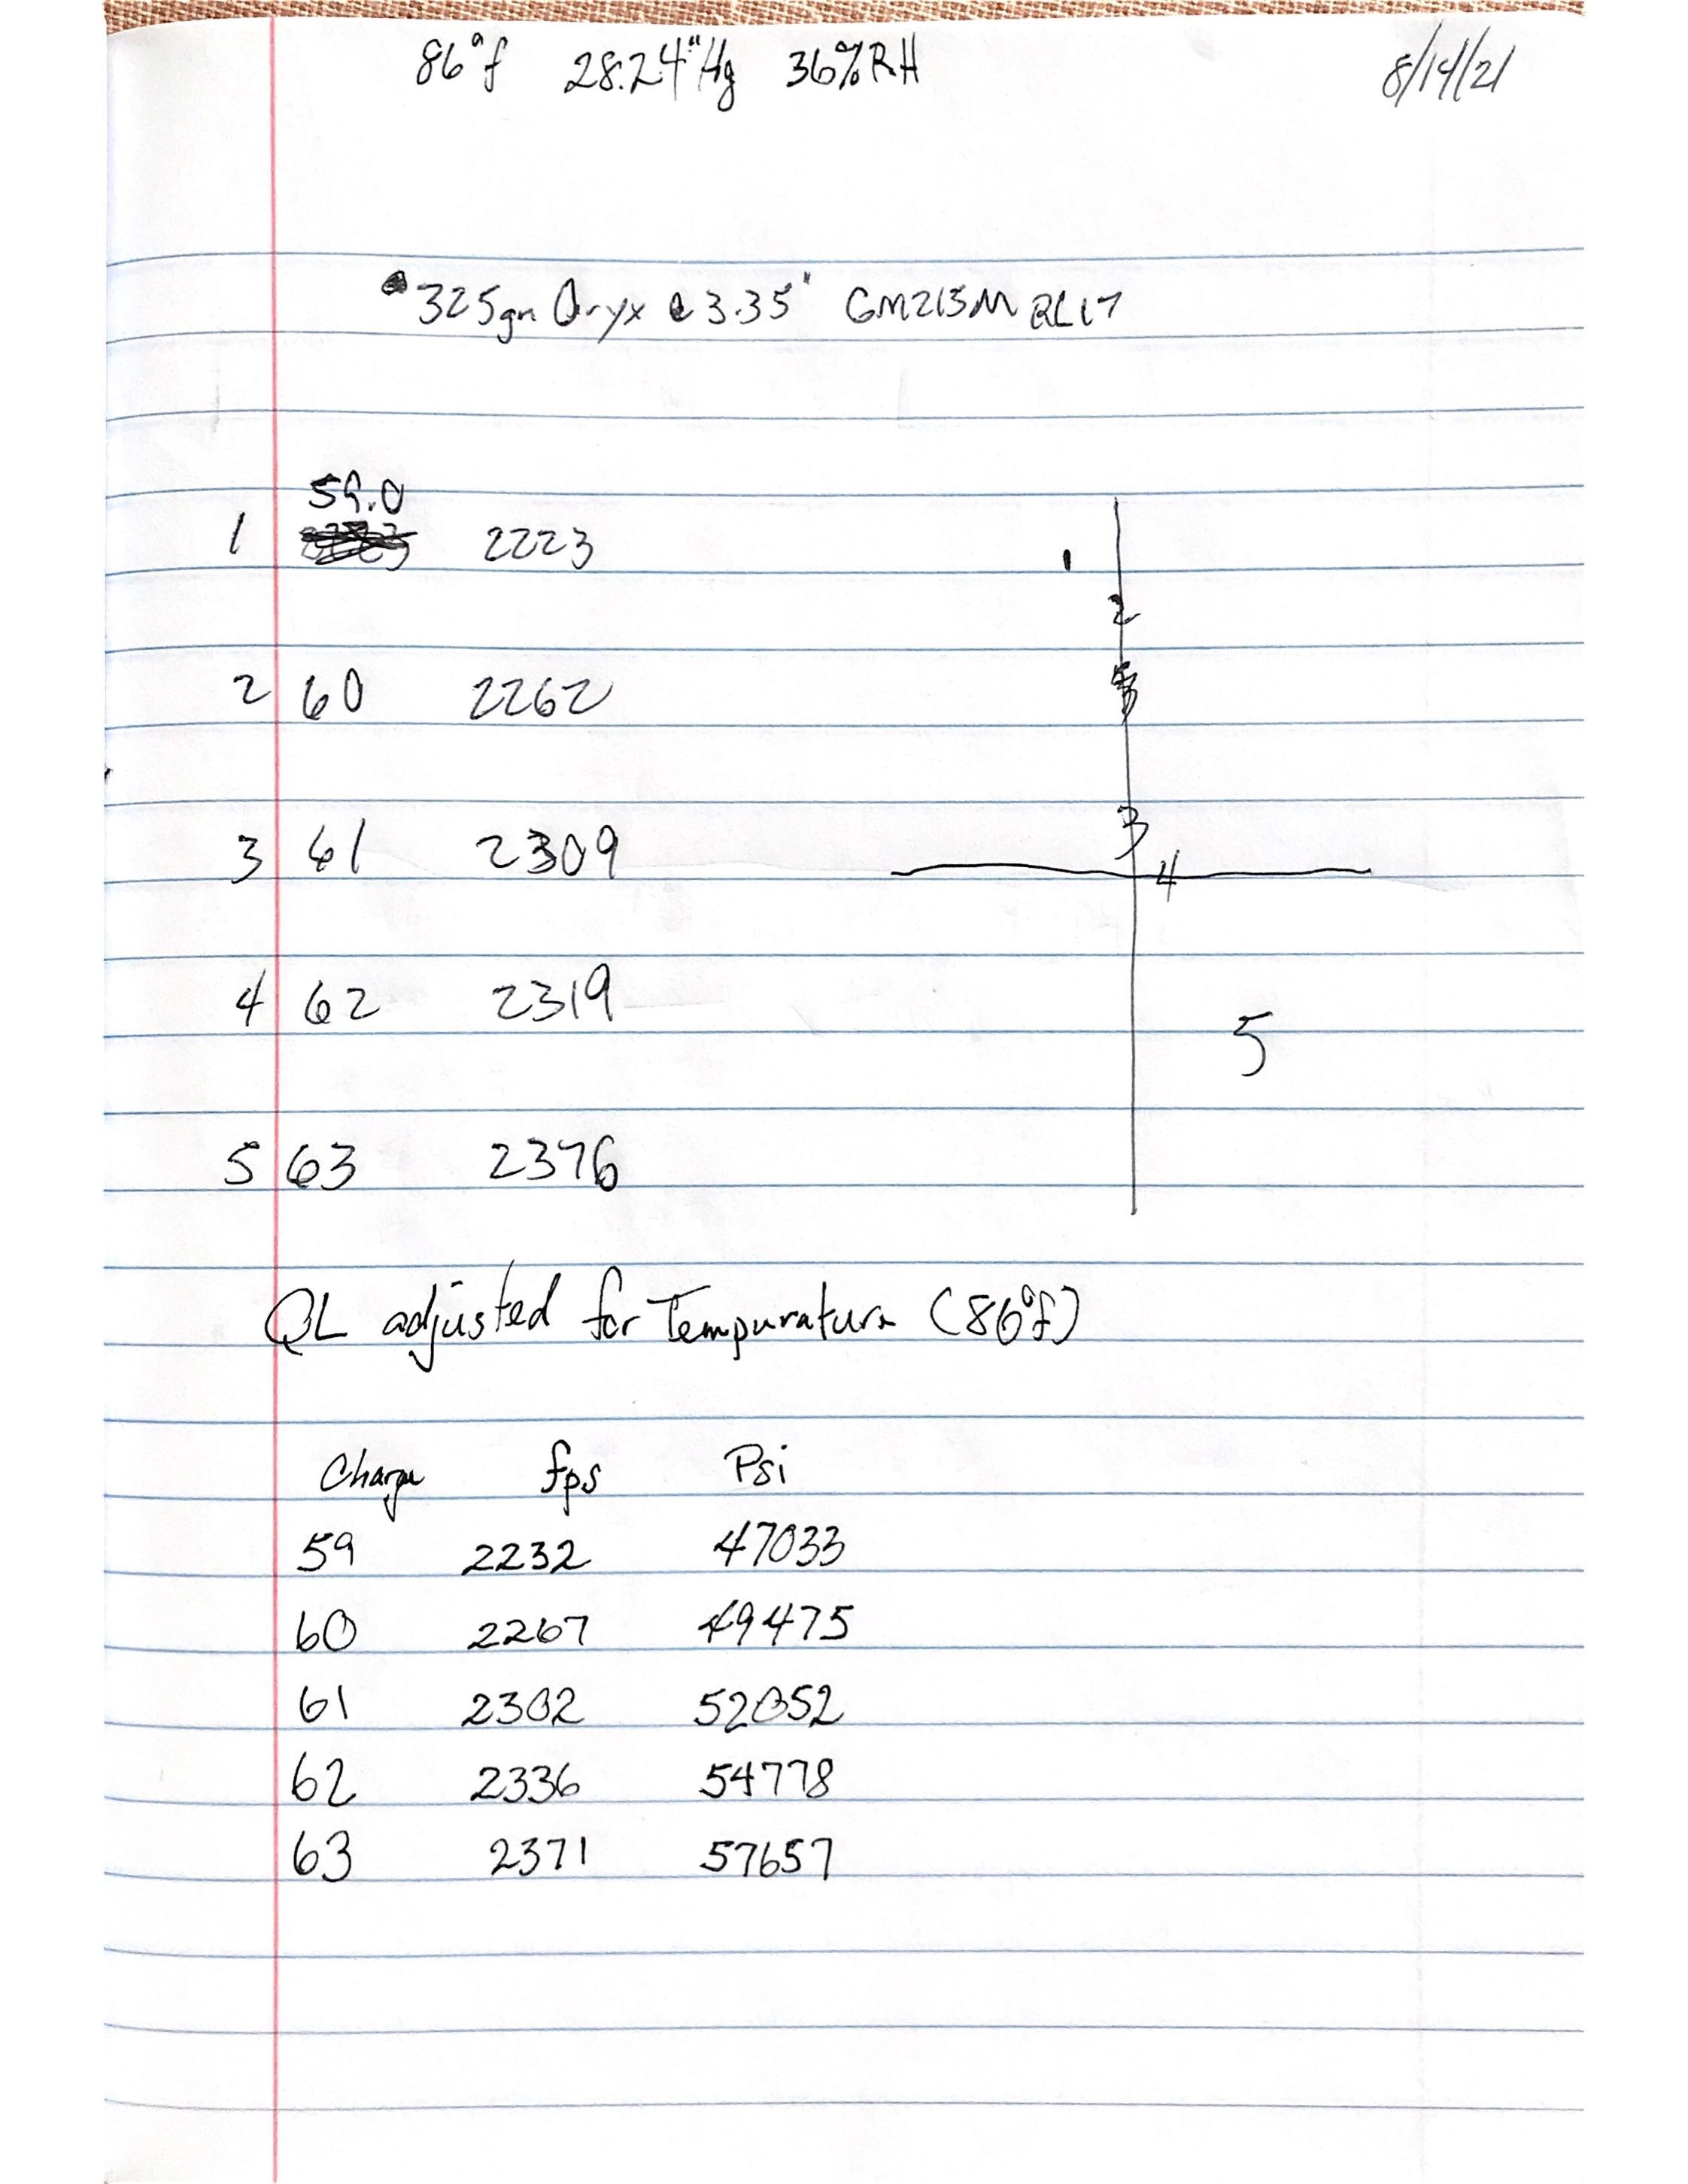 86°f 28.24"Hg 36%RH 8/14/21
325gn Oryx @ 3.35" GM215M RL17
59.0
1 2223
1
2
2 60 2262
3
3 61 2309
4
4 62 2319
5
5 63 2376
QL adjusted for Tempurature (86°f)
Charge fps Psi
59 2232 47033
60 2267 49475
61 2302 52052
62 2336 54778
63 2371 57657